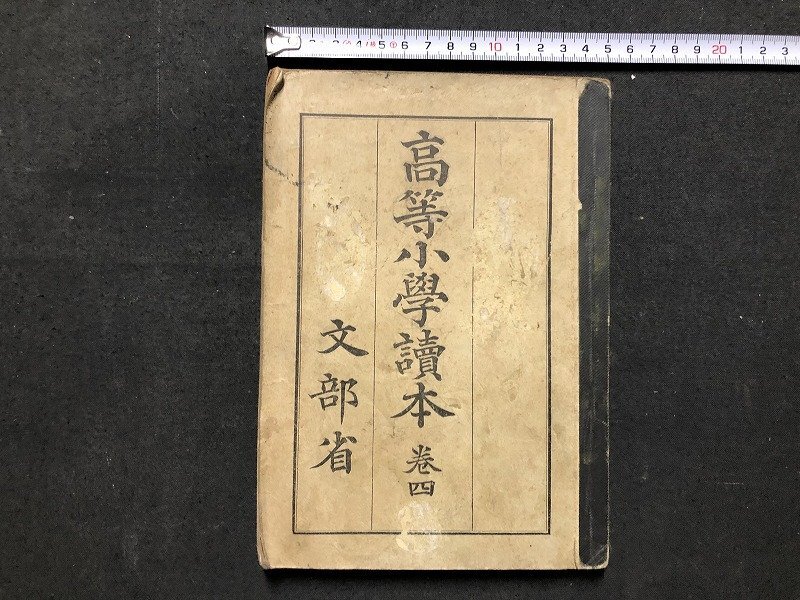 3 4 5 6 7 8 9 10 1 2 3 4 5 6 7 8 9 20 1 2 3
高等小學讀本 卷四
文部省